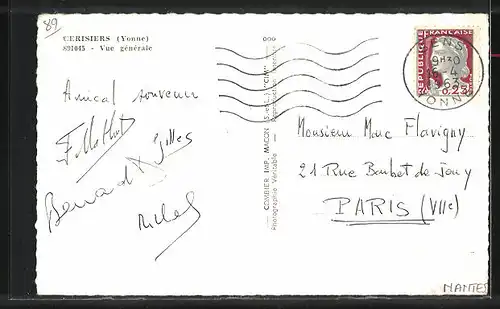 89
CERISIERS (Yonne)
891045 - Vue générale
Amical souvenir
Gilles
Bernard
Michel
COMBIER IMP. MACON (S.-et-L.) "CIM"
Photographie Véritable - Reproduction interdite
REPUBLIQUE FRANÇAISE
0,25
SENS
YONNE
Monsieur Marc Flavigny
21 Rue Barbet de Jouy
PARIS (VIIe)
NANTES